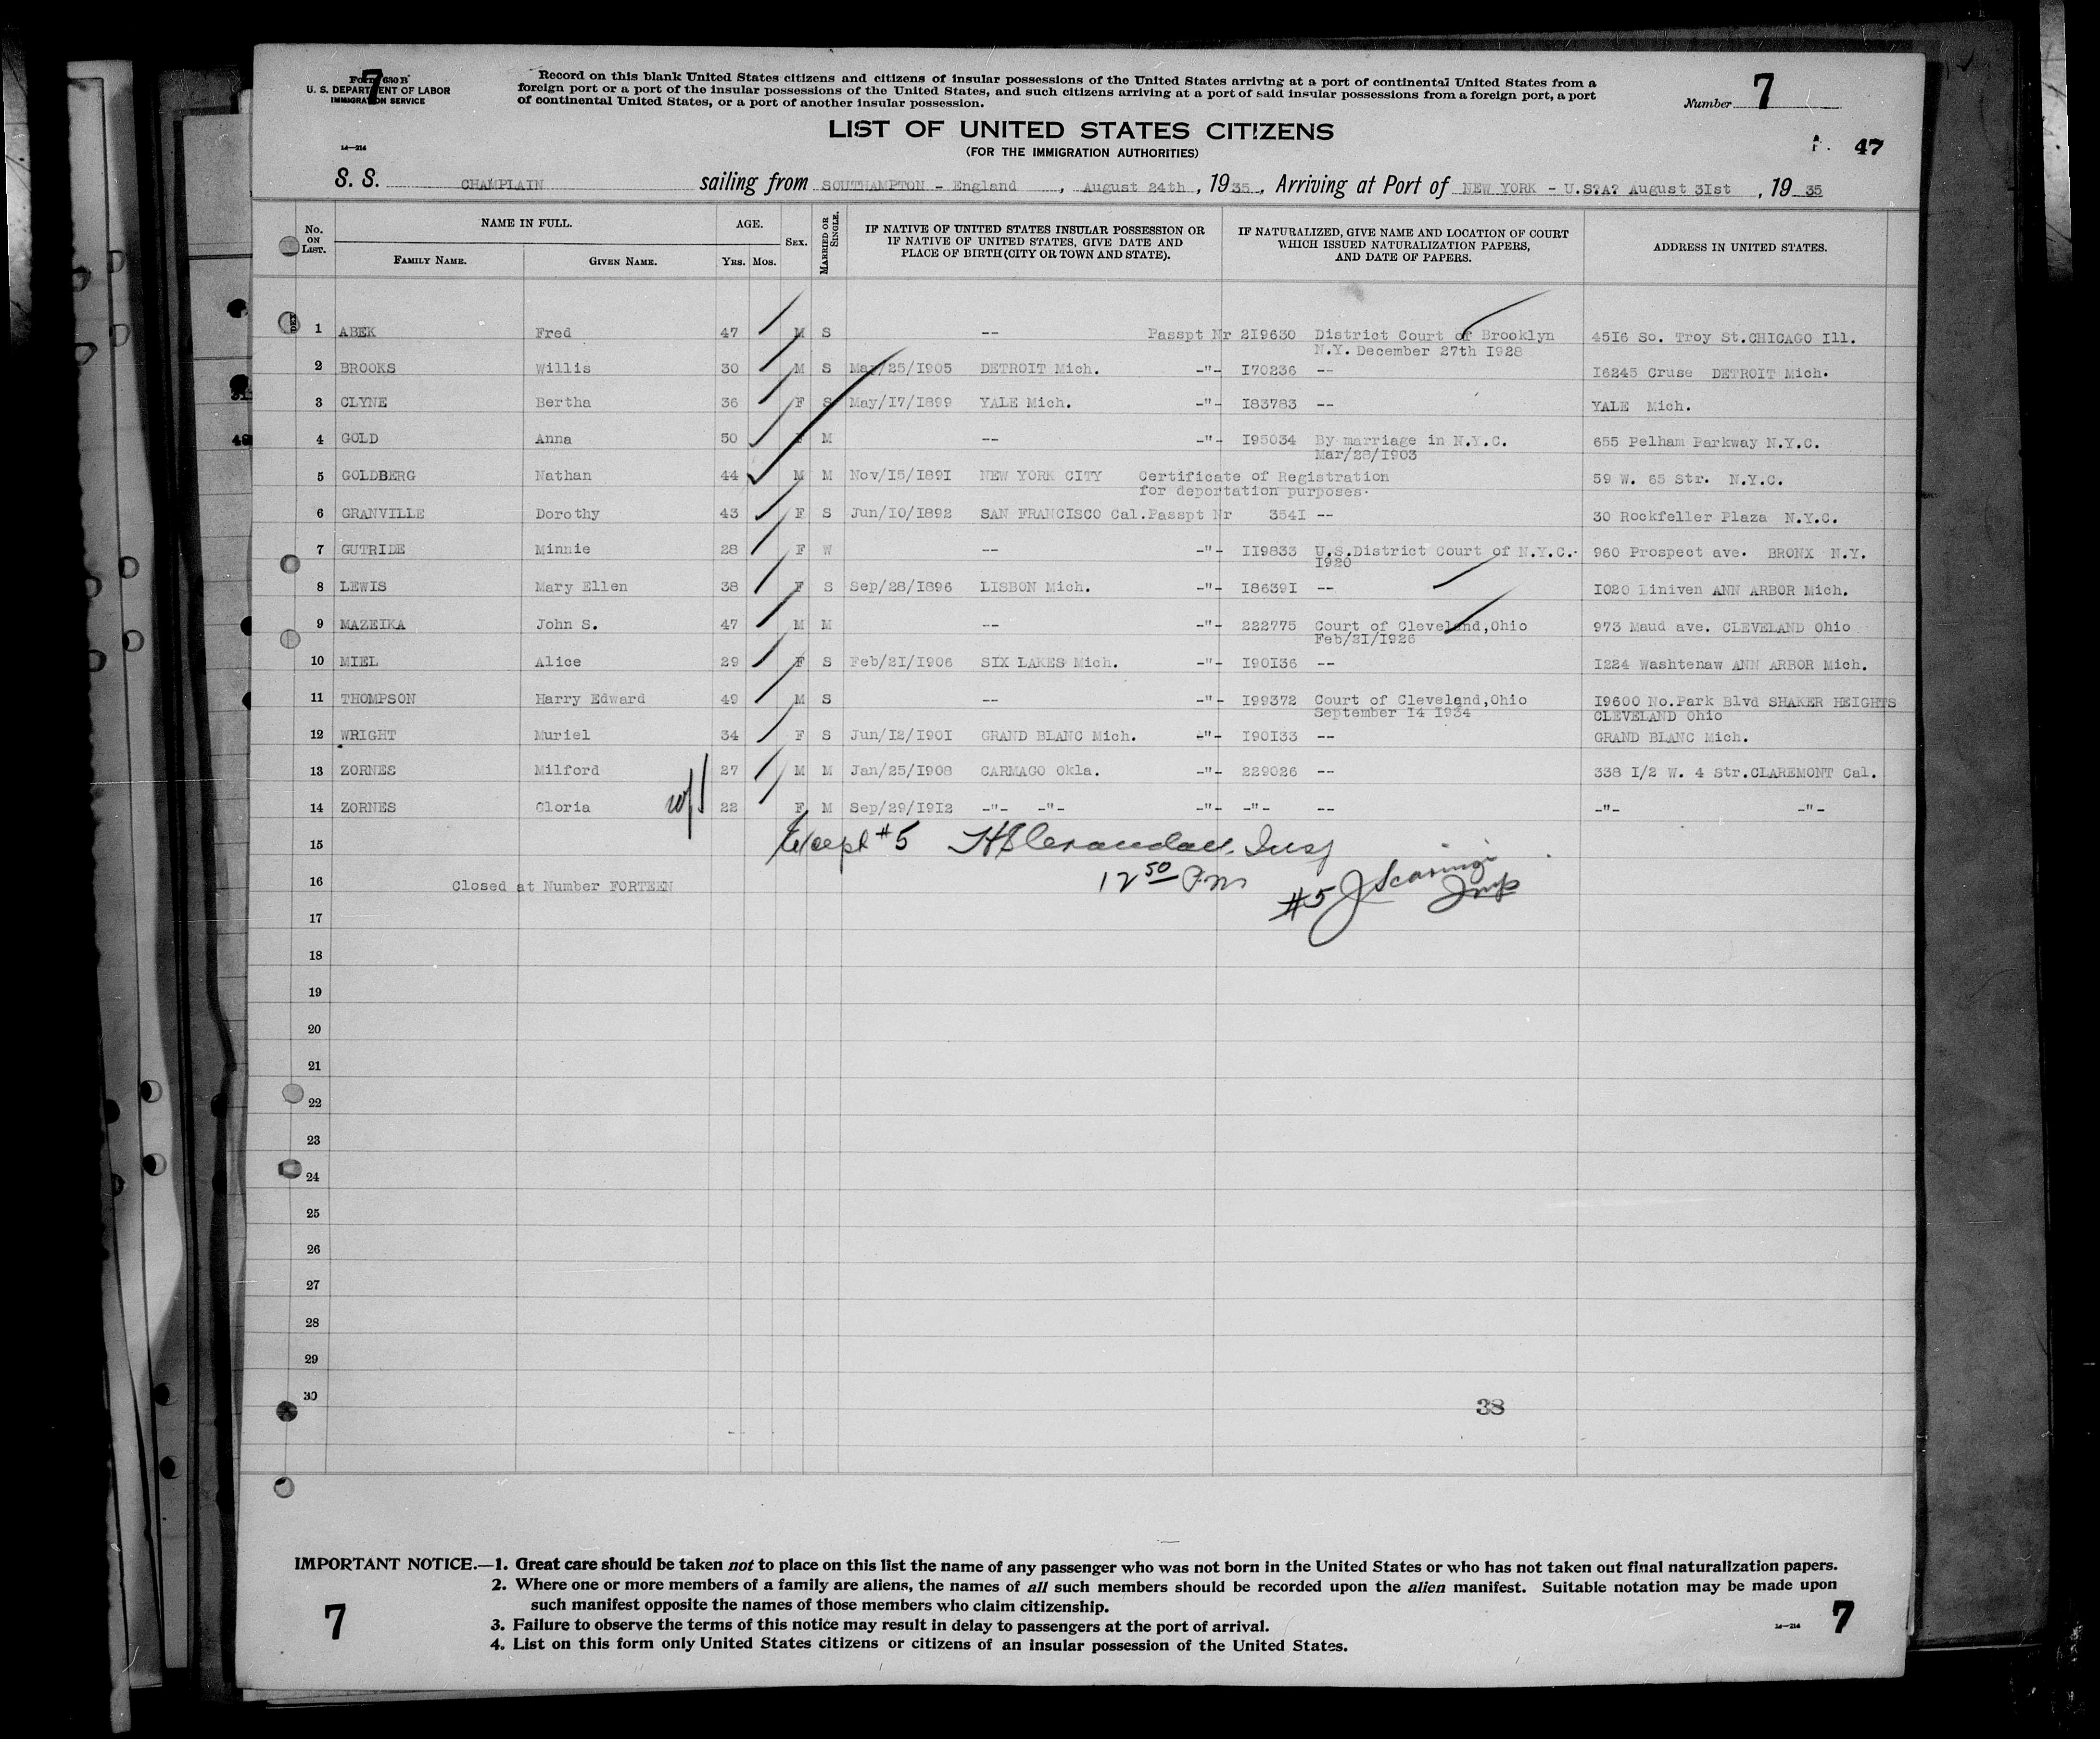 Form 630 B
U. S. DEPARTMENT OF LABOR
IMMIGRATION SERVICE
7
14—214
Record on this blank United States citizens and citizens of insular possessions of the United States arriving at a port of continental United States from a
foreign port or a port of the insular possessions of the United States, and such citizens arriving at a port of said insular possessions from a foreign port, a port
of continental United States, or a port of another insular possession.
Number 7
LIST OF UNITED STATES CITIZENS
(FOR THE IMMIGRATION AUTHORITIES)
47
S. S. CHAMPLAIN sailing from SOUTHAMPTON - England , August 24th , 1935 , Arriving at Port of NEW YORK - U.S?A? August 3Ist , 19 35
No. ON LIST. NAME IN FULL. AGE. SEX. MARRIED OR SINGLE. IF NATIVE OF UNITED STATES INSULAR POSSESSION OR IF NATIVE OF UNITED STATES, GIVE DATE AND PLACE OF BIRTH (CITY OR TOWN AND STATE). IF NATURALIZED, GIVE NAME AND LOCATION OF COURT WHICH ISSUED NATURALIZATION PAPERS, AND DATE OF PAPERS. ADDRESS IN UNITED STATES.
FAMILY NAME. GIVEN NAME. YRS. MOS.
1 ABEK Fred 47 M S -- Passpt Nr 2I9630 District Court of Brooklyn 45I6 So. Troy St.CHICAGO Ill.
N.Y. December 27th I928
2 BROOKS Willis 30 M S May/25/I905 DETROIT Mich. -"- I70236 -- I6245 Cruse DETROIT Mich.
3 CLYNE Bertha 36 F S May/I7/I899 YALE Mich. -"- I83783 -- YALE Mich.
4 GOLD Anna 50 F M -- -"- I95034 By marriage in N.Y.C. 655 Pelham Parkway N.Y.C.
Mar/28/I903
5 GOLDBERG Nathan 44 M M Nov/I5/I89I NEW YORK CITY Certificate of Registration 59 W. 65 Str. N.Y.C.
for deportation purposes.
6 GRANVILLE Dorothy 43 F S Jun/I0/I892 SAN FRANCISCO Cal.Passpt Nr 354I -- 30 Rockfeller Plaza N.Y.C.
7 GUTRIDE Minnie 28 F W -- -"- II9833 U.S.District Court of N.Y.C. 960 Prospect ave. BRONX N.Y.
I920
8 LEWIS Mary Ellen 38 F S Sep/28/I896 LISBON Mich. -"- I8639I -- I020 Liniven ANN ARBOR Mich.
9 MAZEIKA John S. 47 M M -- -"- 222775 Court of Cleveland,Ohio 973 Maud ave. CLEVELAND Ohio
Feb/2I/I926
10 MIEL Alice 29 F S Feb/2I/I906 SIX LAKES Mich. -"- I90I36 -- I224 Washtenaw ANN ARBOR Mich.
11 THOMPSON Harry Edward 49 M S -- -"- I99372 Court of Cleveland,Ohio I9600 No.Park Blvd SHAKER HEIGHTS
September I4 I934 CLEVELAND Ohio
12 WRIGHT Muriel 34 F S Jun/I2/I90I GRAND BLANC Mich. -"- I90I33 -- GRAND BLANC Mich.
13 ZORNES Milford 27 M M Jan/25/I908 CARMAGO Okla. -"- 229026 -- 338 I/2 W. 4 Str.CLAREMONT Cal.
14 ZORNES Gloria w/ 22 F M Sep/29/I9I2 -"- -"- -"- -"- -- -"- -"-
15 Except #5 Insp
16 Closed at Number FORTEEN 12 50 P.m #5 J Scaringi Insp
17
18
19
20
21
22
23
24
25
26
27
28
29
30
38
IMPORTANT NOTICE.—1. Great care should be taken not to place on this list the name of any passenger who was not born in the United States or who has not taken out final naturalization papers.
2. Where one or more members of a family are aliens, the names of all such members should be recorded upon the alien manifest. Suitable notation may be made upon
such manifest opposite the names of those members who claim citizenship.
3. Failure to observe the terms of this notice may result in delay to passengers at the port of arrival.
4. List on this form only United States citizens or citizens of an insular possession of the United States.
7
14—214 7